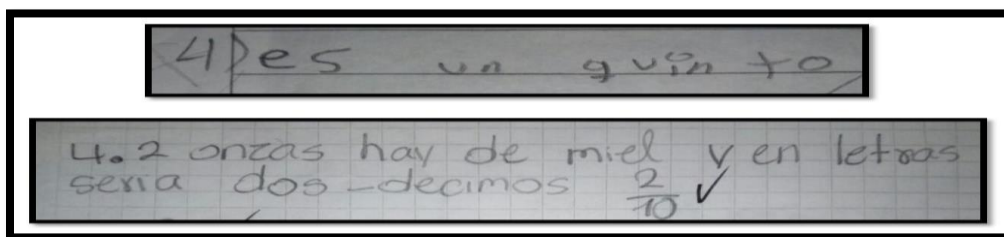 4) es un quinto
4. 2 onzas hay de miel y en letras
seria dos-decimos 2/10 ✓